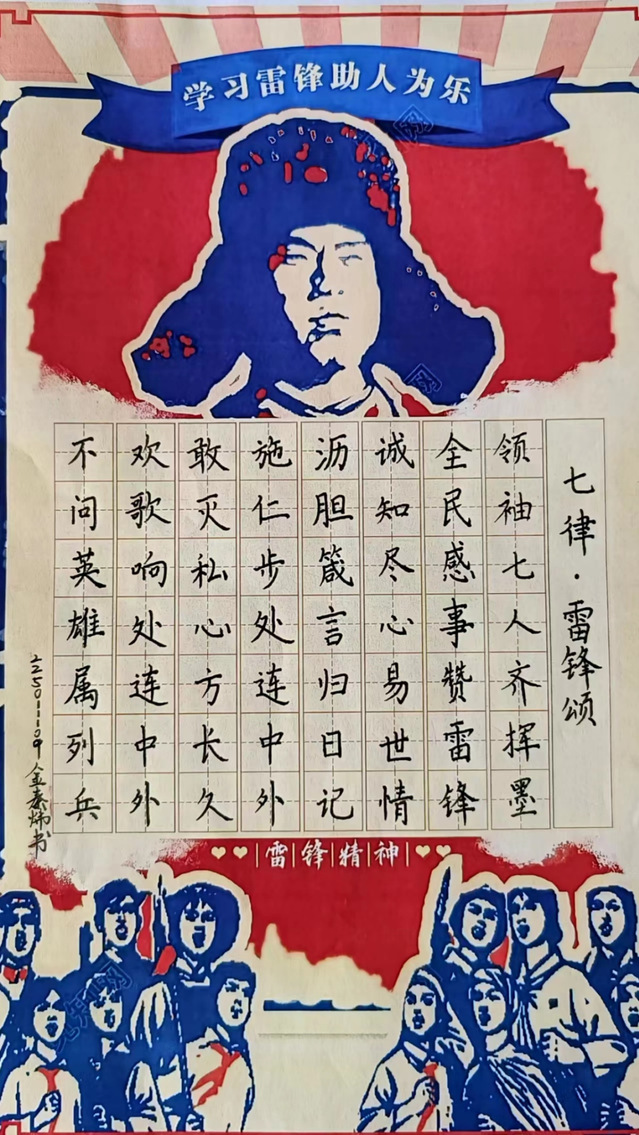 学习雷锋助人为乐
七律·雷锋颂
领袖七人齐挥墨
全民感事赞雷锋
诚知尽心易世情
沥胆箴言归日记
施仁步处连中外
敢灭私心方长久
欢歌响处连中外
不问英雄属列兵
金泰炜书
雷锋精神